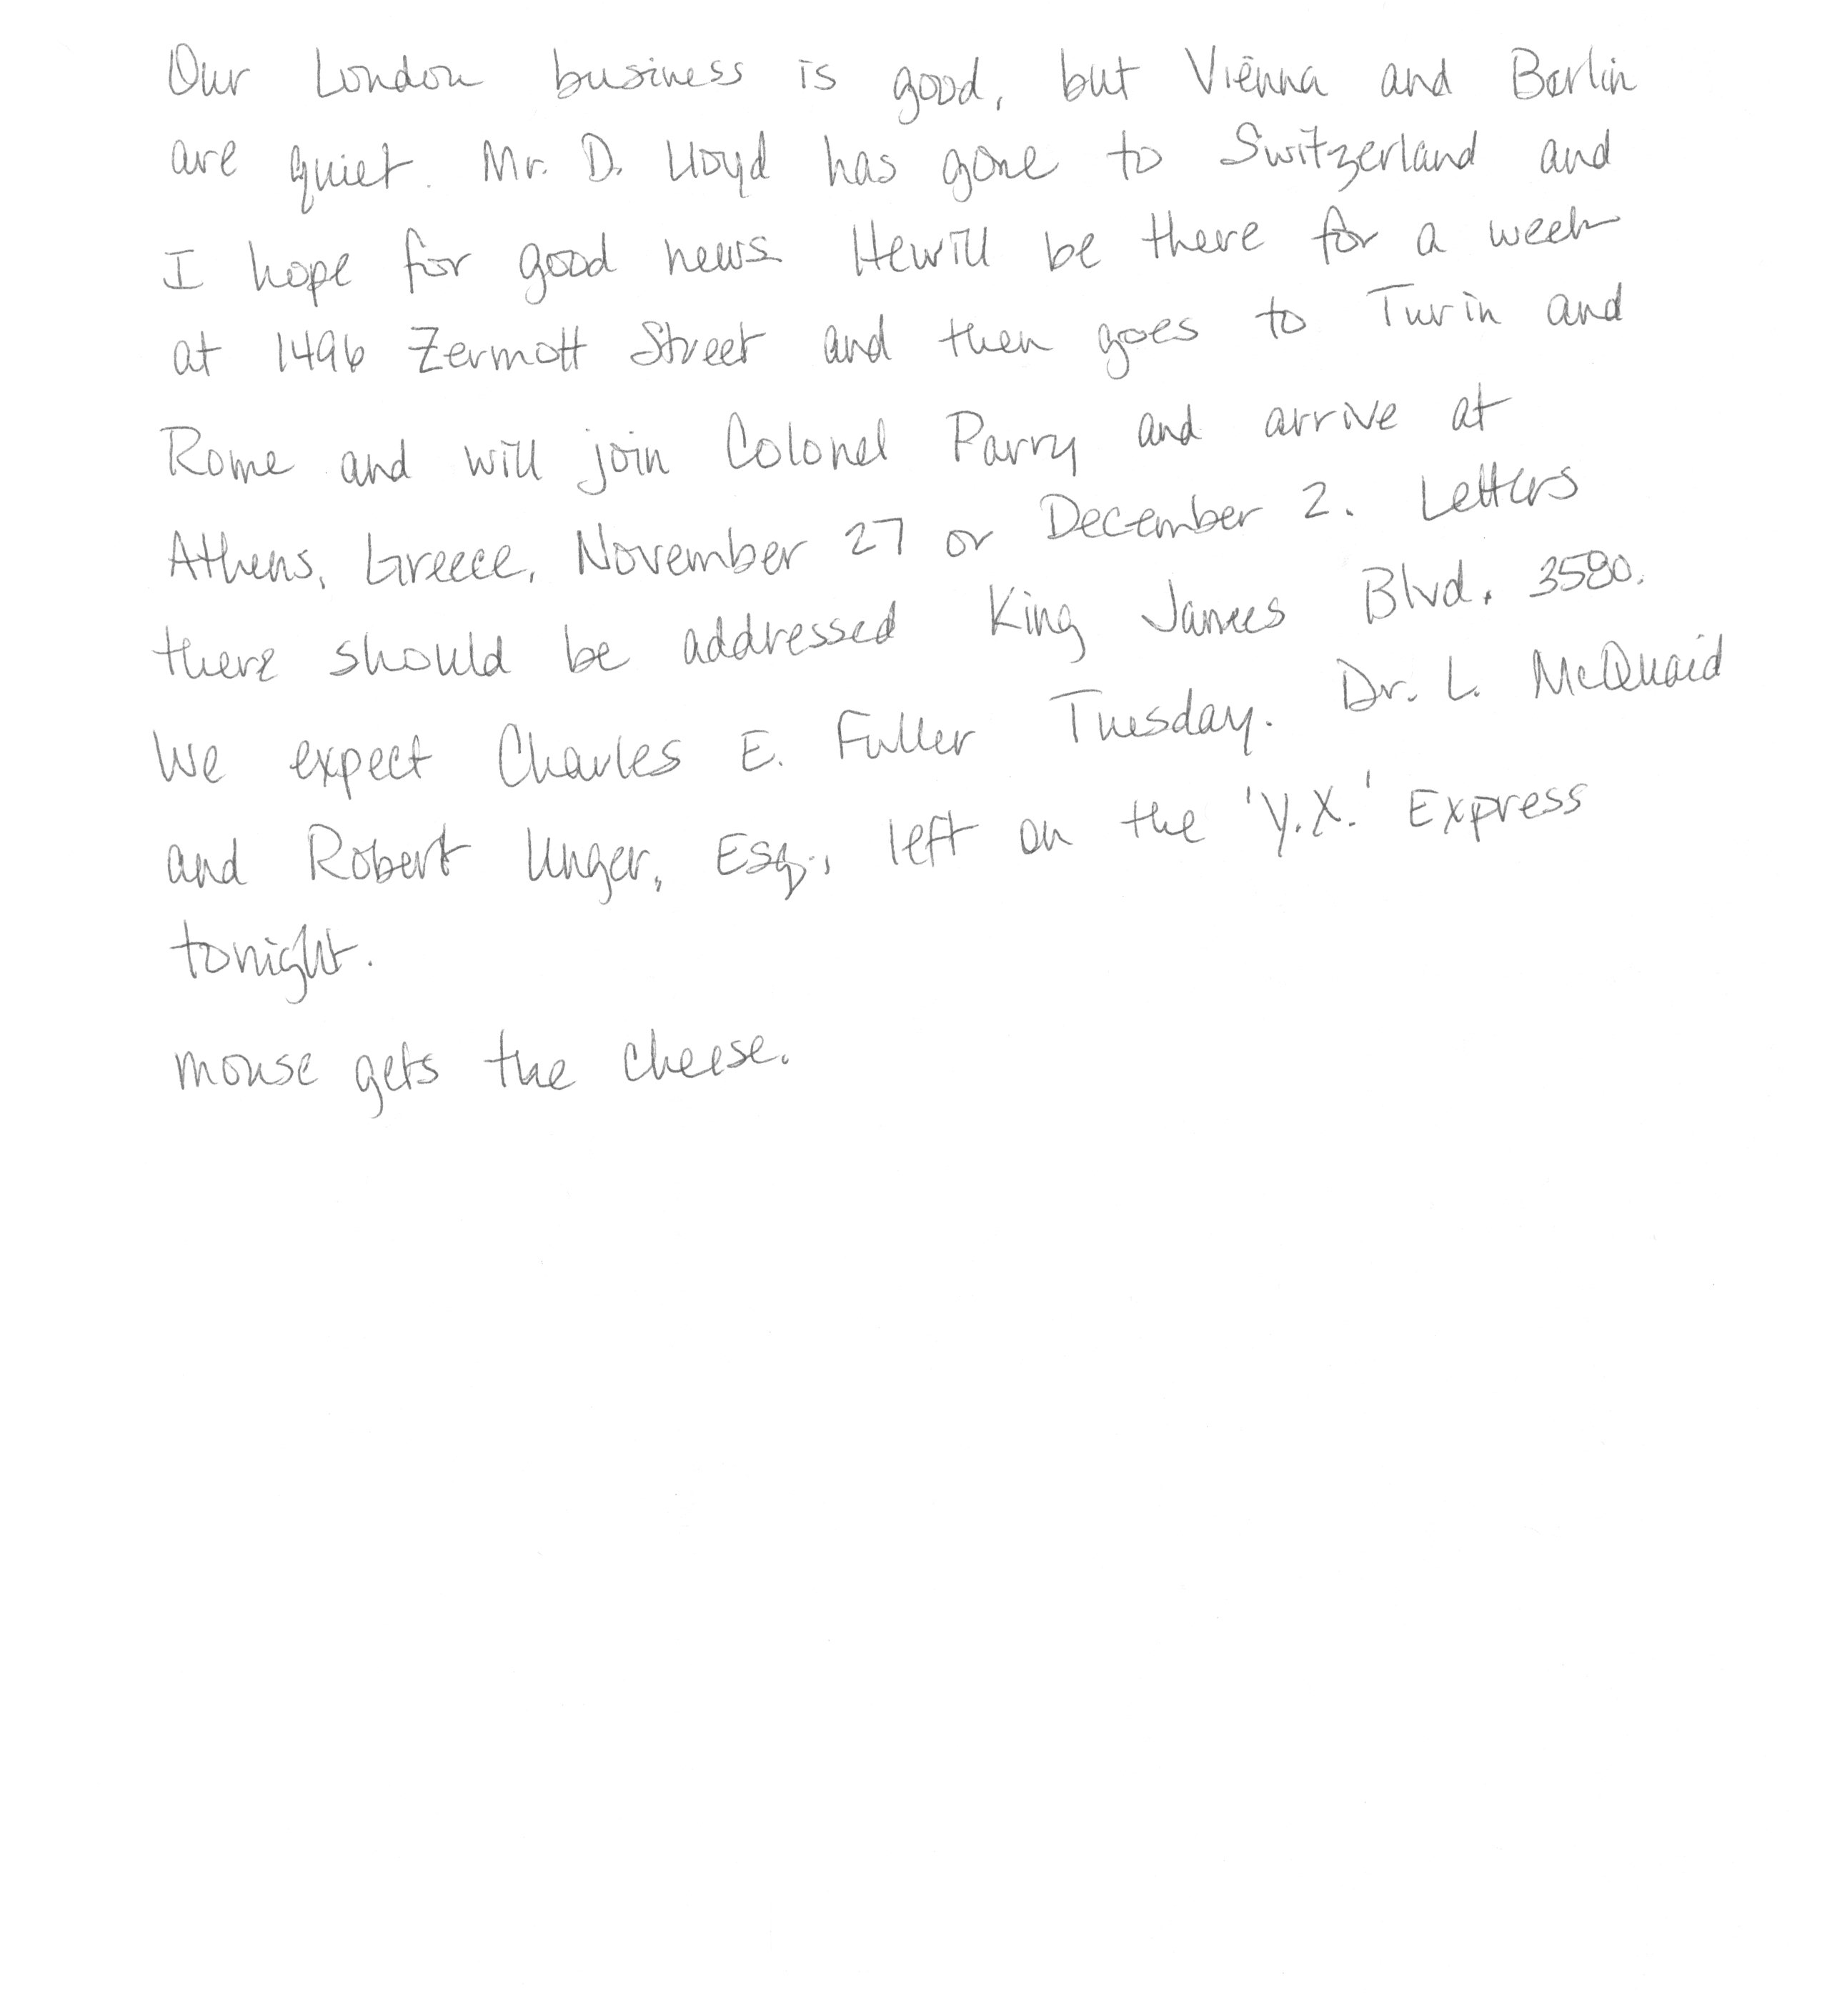 Our London business is good, but Vienna and Berlin
are quiet. Mr. D. Lloyd has gone to Switzerland and
I hope for good news. Hewill be there for a week
at 1496 Zermott Street and then goes to Turin and
Rome and will join Colonel Parry and arrive at
Athens, Greece, November 27 or December 2. Letters
there should be addressed King James Blvd. 3580.
We expect Charles E. Fuller Tuesday. Dr. L. McQuaid
and Robert Unger, Esq., left on the 'Y.X.' Express
tonight.
mouse gets the cheese.